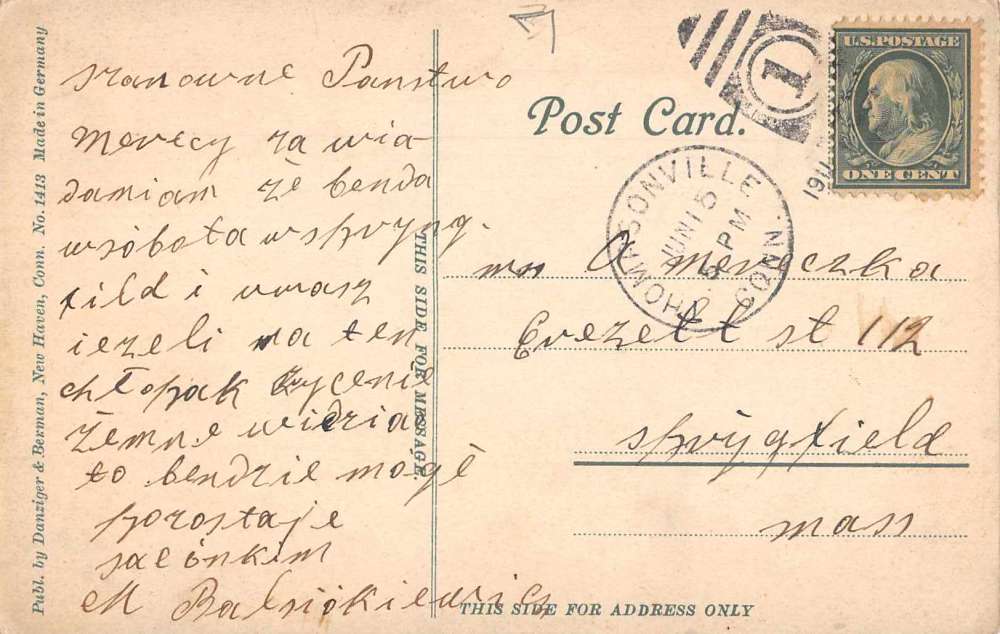 Publ. by Danziger & Berman, New Haven, Conn. No. 1413 Made in Germany
szanowne Panstwo
Merecy za wia
damiam že benda
wsóbota wspryng.
fild i uwasz
iezeli na ten
chłopak życenie
żemne widzia
to bendzie mógę
pozostaje
M
THIS SIDE FOR MESSAGE.
Post Card.
U.S. POSTAGE
ONE CENT
1
1911
THOMPSONVILLE CONN.
JUN 15
5 PM
mr A Mereczka
Everett st 112
spryngfield
mass
THIS SIDE FOR ADDRESS ONLY